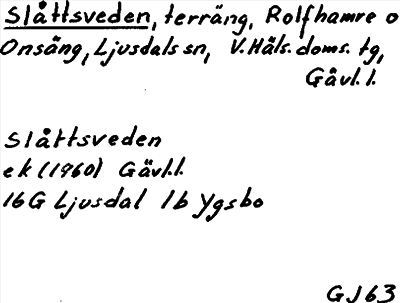 Slåttsveden, terräng, Rolfhamre o
Onsäng, Ljusdals sn, V. Häls. doms. tg,
Gävl. l.
Slåttsveden
ek (1960) Gävl.l.
16G Ljusdal 1b Ygsbo
GJ63